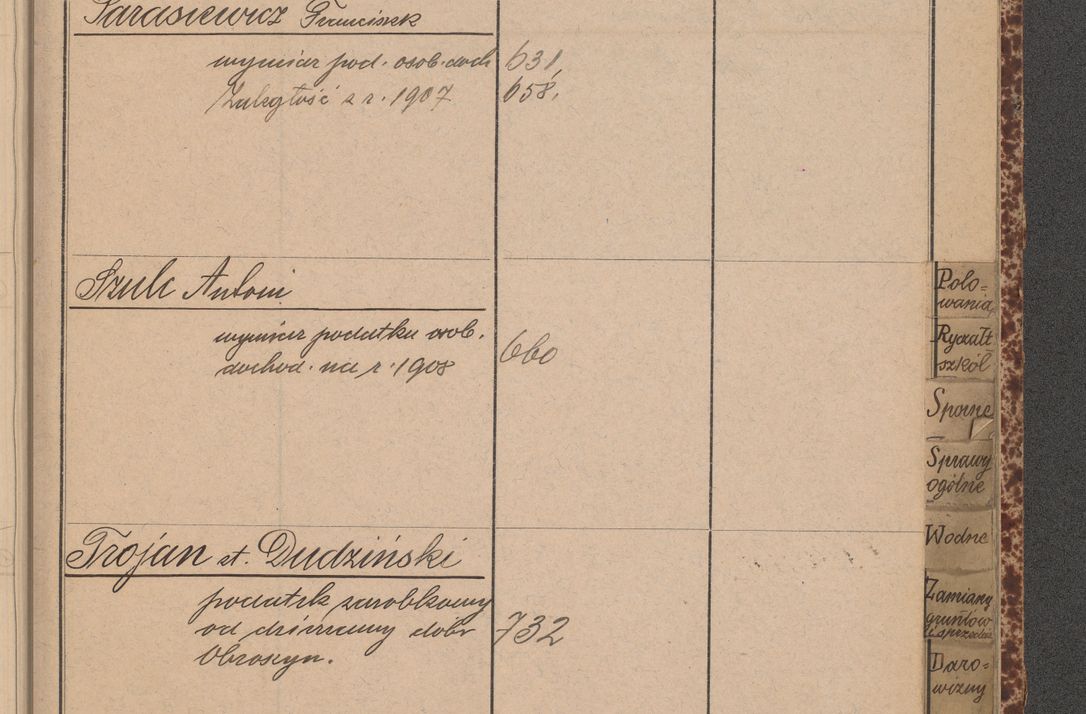 Tarasiewicz Franciszek
wymiar pod. osob. doch 631,
Zaległość z r. 1907 658,
Szulc Antoni
wymiar podatku osob.
dochod. na r. 1908 660
Trojan et. Dudziński
podatek zarobkowy
od dzierżawy dóbr 732
Obroszyn.
Polo=
wania
Ryczałt
szkół
Sporne
Sprawy
ogólne
Wodne
Zamiany
gruntów
i sprzedaż
Daro=
wizny